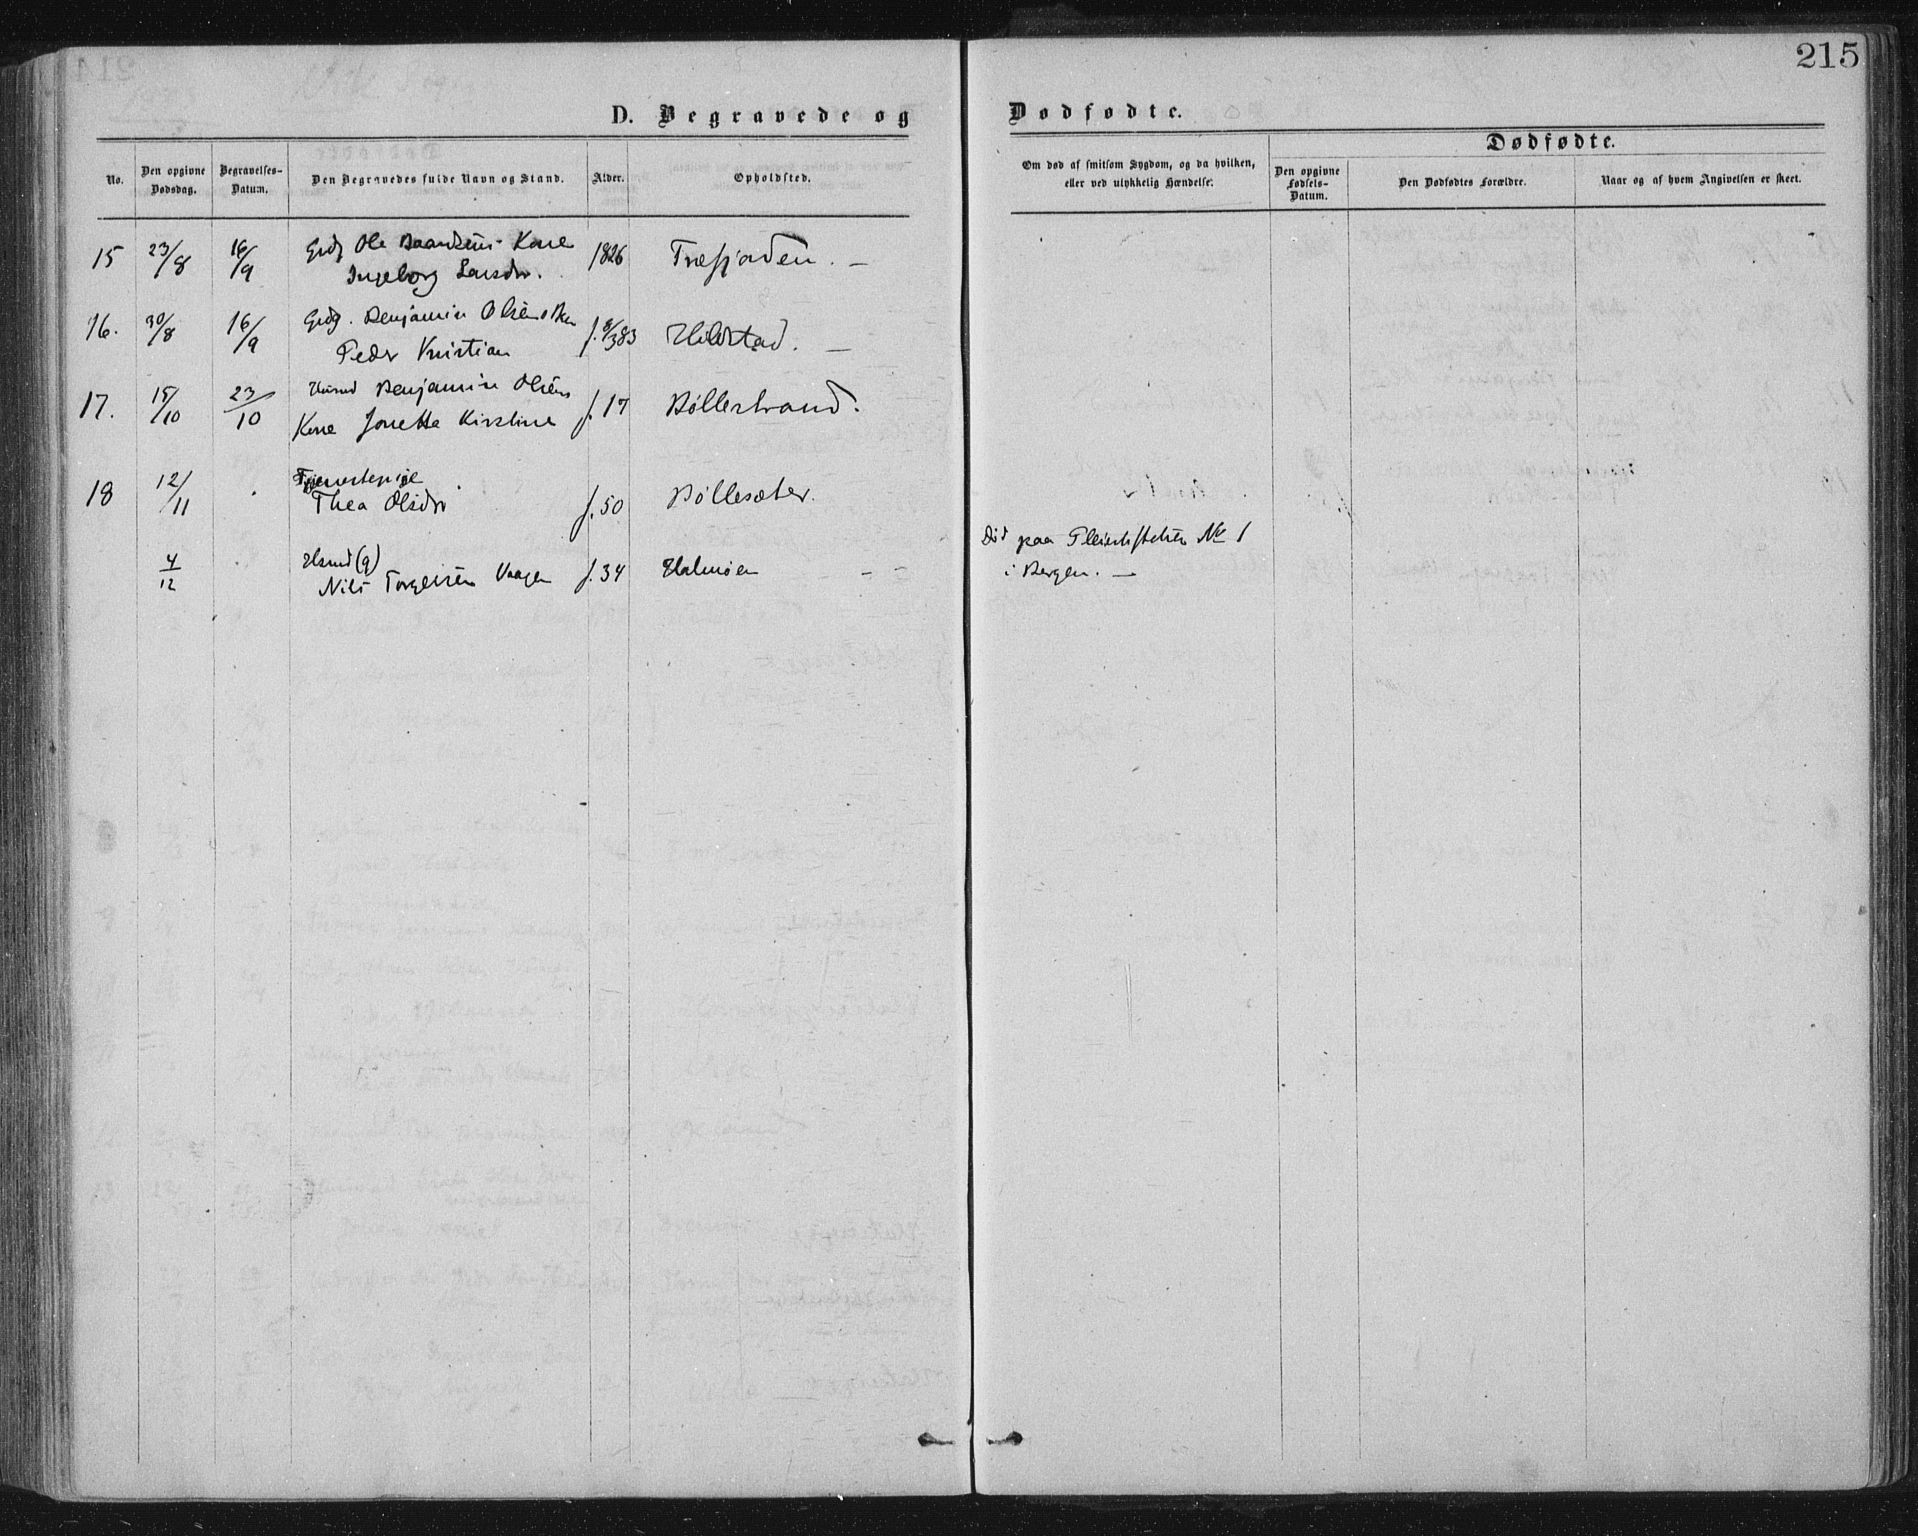 215
D. Begravede og Dødfødte.
Dødfødte.
No.
Den opgivne Dødsdag.
Begravelses-Datum.
Den Begravedes fulde Navn og Stand.
Alder.
Opholdsted.
Om død af smitsom Sygdom, og da hvilken, eller ved ulykkelig Hændelse.
Den opgivne Fødsels-Datum.
Den Dødfødtes Forældre.
Naar og af hvem Angivelsen er skeet.
15 23/8 16/9 Grdg Ole Baardsens Kone 1826 Træfjorden. —
Ingeborg Larsdr.
16. 30/8 16/9 Grdg. Benjamin Olsens Bn f. 8/3 83 Hildstad. —
Peder Kristian
17. 15/10 23/10 Husmd Benjamin Olsens f. 17 Bøllestrand.
Kone Jonetta Kirstine
18 12/11 Tjenestepige
Thea Olsdr f. 50 Bøllesæter.
4/12 Husmd (g)
Nils Torgersen Vaagen f. 34 Halmøen - -
Død paa Pleiestiftelsen No 1
i Bergen. —